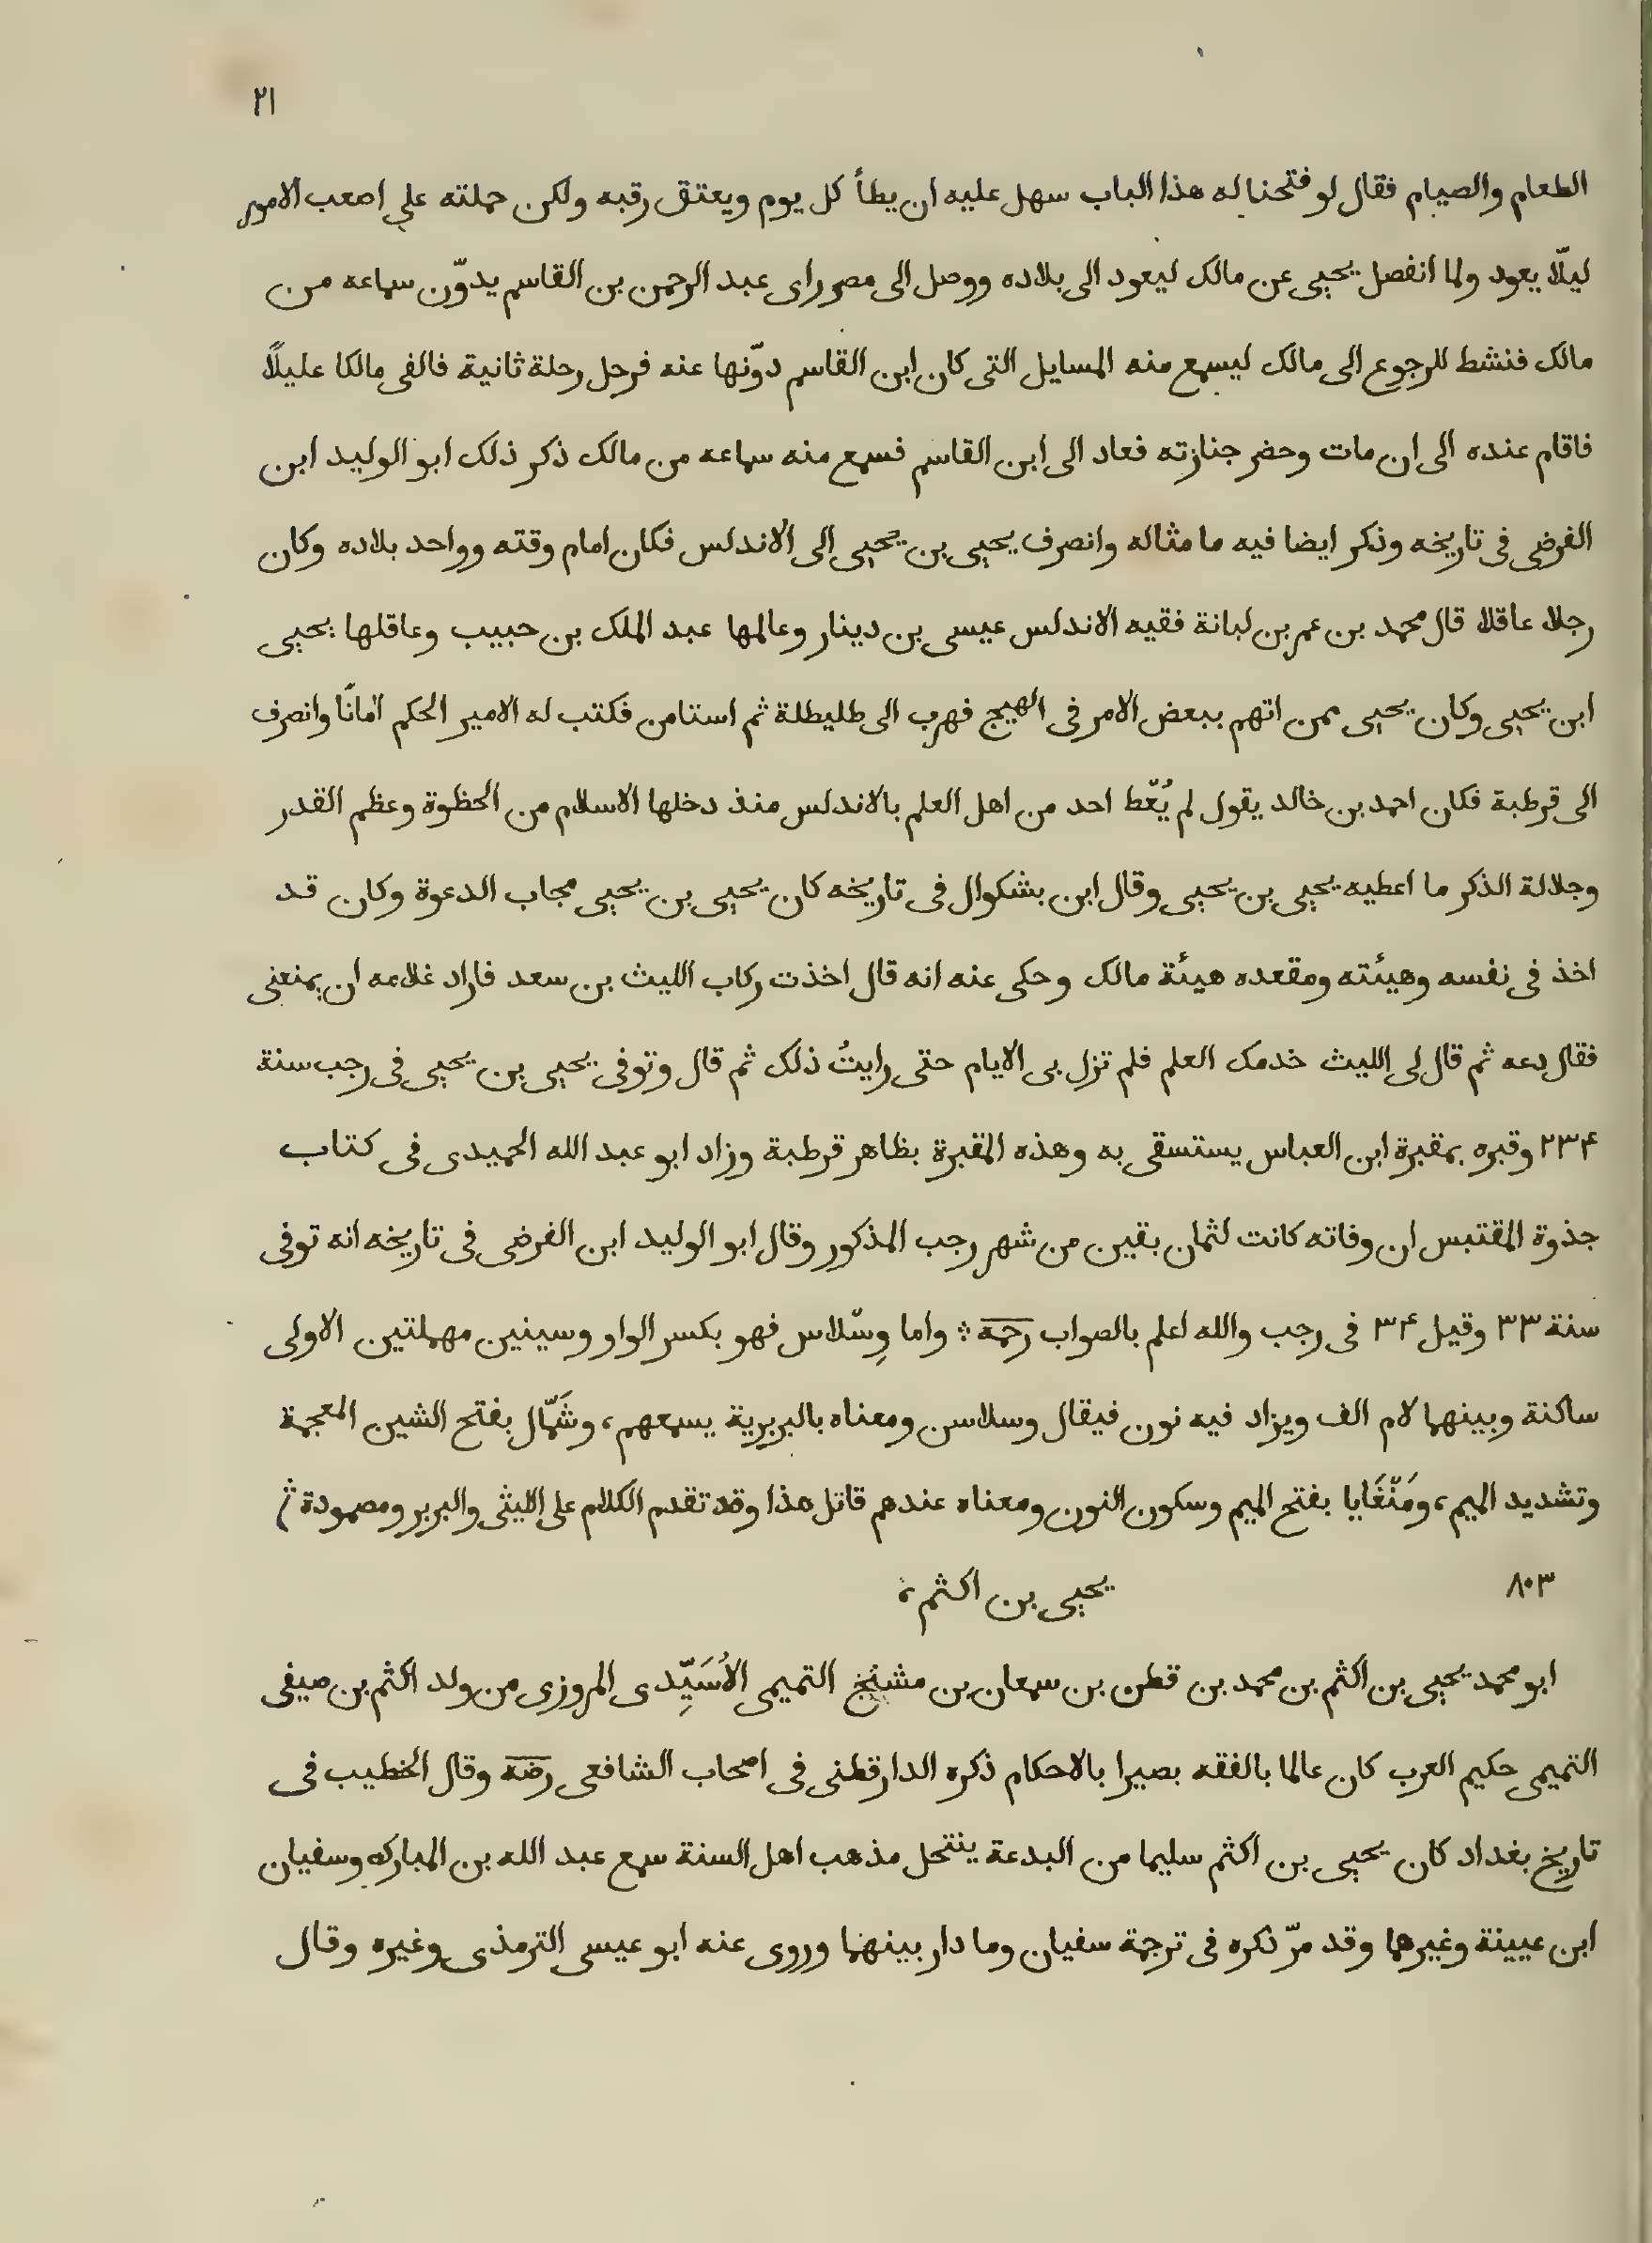 ٢١
الطعام والصيام فقال لو فتحنا له هذا الباب سهل عليه ان يطأ كل يوم ويعتق رقبه ولكن حملته علي اصعب الامور
ليلّا يعود ولما انفصل يحيى عن مالك ليعود الى بلاده ووصل الى مصر راى عبد الرحمن بن القاسم يدوّن سماعه من
مالك فنشط للرجوع الى مالك ليسمع منه المسايل التى كان ابن القاسم دوّنها عنه فرحل رحلة ثانية فالفى مالكا عليلًا
فاقام عنده الى ان مات وحضر جنازته فعاد الى ابن القاسم فسمع منه سماعه من مالك ذكر ذلك ابو الوليد ابن
الفرضى فى تاريخه وذكر ايضا فيه ما مثاله وانصرف يحيى بن يحيى الى الاندلس فكان امام وقته وواحد بلاده وكان
رجلا عاقلا قال محمد بن عمر بن لبانة فقيه الاندلس عيسى بن دينار وعالمها عبد الملك بن حبيب وعاقلها يحيى
ابن يحيى وكان يحيى ممن اتهم ببعض الامر فى الهيج فهرب الى طليطلة ثم استامن فكتب له الامير الحكم امانًا وانصرف
الى قرطبة فكان احمد بن خالد يقول لم يُعّط احد من اهل العلم بالاندلس منذ دخلها الاسلام من الحظوة وعظم القدر
وجلالة الذكر ما اعطيه يحيى بن يحيى وقال ابن بشكوال فى تاريخه كان يحيى بن يحيى مجاب الدعوة وكان قد
اخذ فى نفسه وهيئته ومقعده هيئة مالك وحكى عنه انه قال اخذت ركاب الليث بن سعد فاراد غلامه ان يمنعنى
فقال دعه ثم قال لى الليث خدمك العلم فلم تزل بى الايام حتى رايتُ ذلك ثم قال وتوفى يحيى بن يحيى فى رجب سنة
٢٣۴ وقبره بمقبرة ابن العباس يستسقى به وهذه المقبرة بظاهر قرطبة وزاد ابو عبد الله الحميدى فى كتاب
جذوة المقتبس ان وفاته كانت لثمان بقين من شهر رجب المذكور وقال ابو الوليد ابن الفرضى فى تاريخه انه توفى
سنة ٣٣ وقيل ٣۴ فى رجب والله اعلم بالصواب رحمه ؞ واما وِسّلاس فهو بكسر الواو وسينين مهملتين الاولى
ساكنة وبينهما لام الف ويزاد فيه نون فيقال وسلاسن ومعناه بالبربرية يسمعهم، وشَمّال بفتح الشين المعجمة
وتشديد الميم، ومَنّغَايا بفتح الميم وسكون النون ومعناه عندهم قاتل هذا وقد تقدم الكلام على الليثى والبربر ومصمودة ؞
٨٠٣ يحيى بن اكثم،
ابو محمد يحيى بن اكثم بن محمد بن قطن بن سمعان بن مشنّج التميمى الأُسَيِّدى المروزى من ولد اكثم بن صيفى
التميمى حكيم العرب كان عالما بالفقه بصيرا بالاحكام ذكره الدارقطنى فى اصحاب الشافعى رضه وقال الخطيب فى
تاريخ بغداد كان يحيى بن اكثم سليما من البدعة ينتحل مذهب اهل السنة سمع عبد الله بن المبارك وسفيان
ابن عيينة وغيرهما وقد مرّ ذكره فى ترجمة سفيان وما دار بينهما وروى عنه ابو عيسى الترمذى وغيره وقال